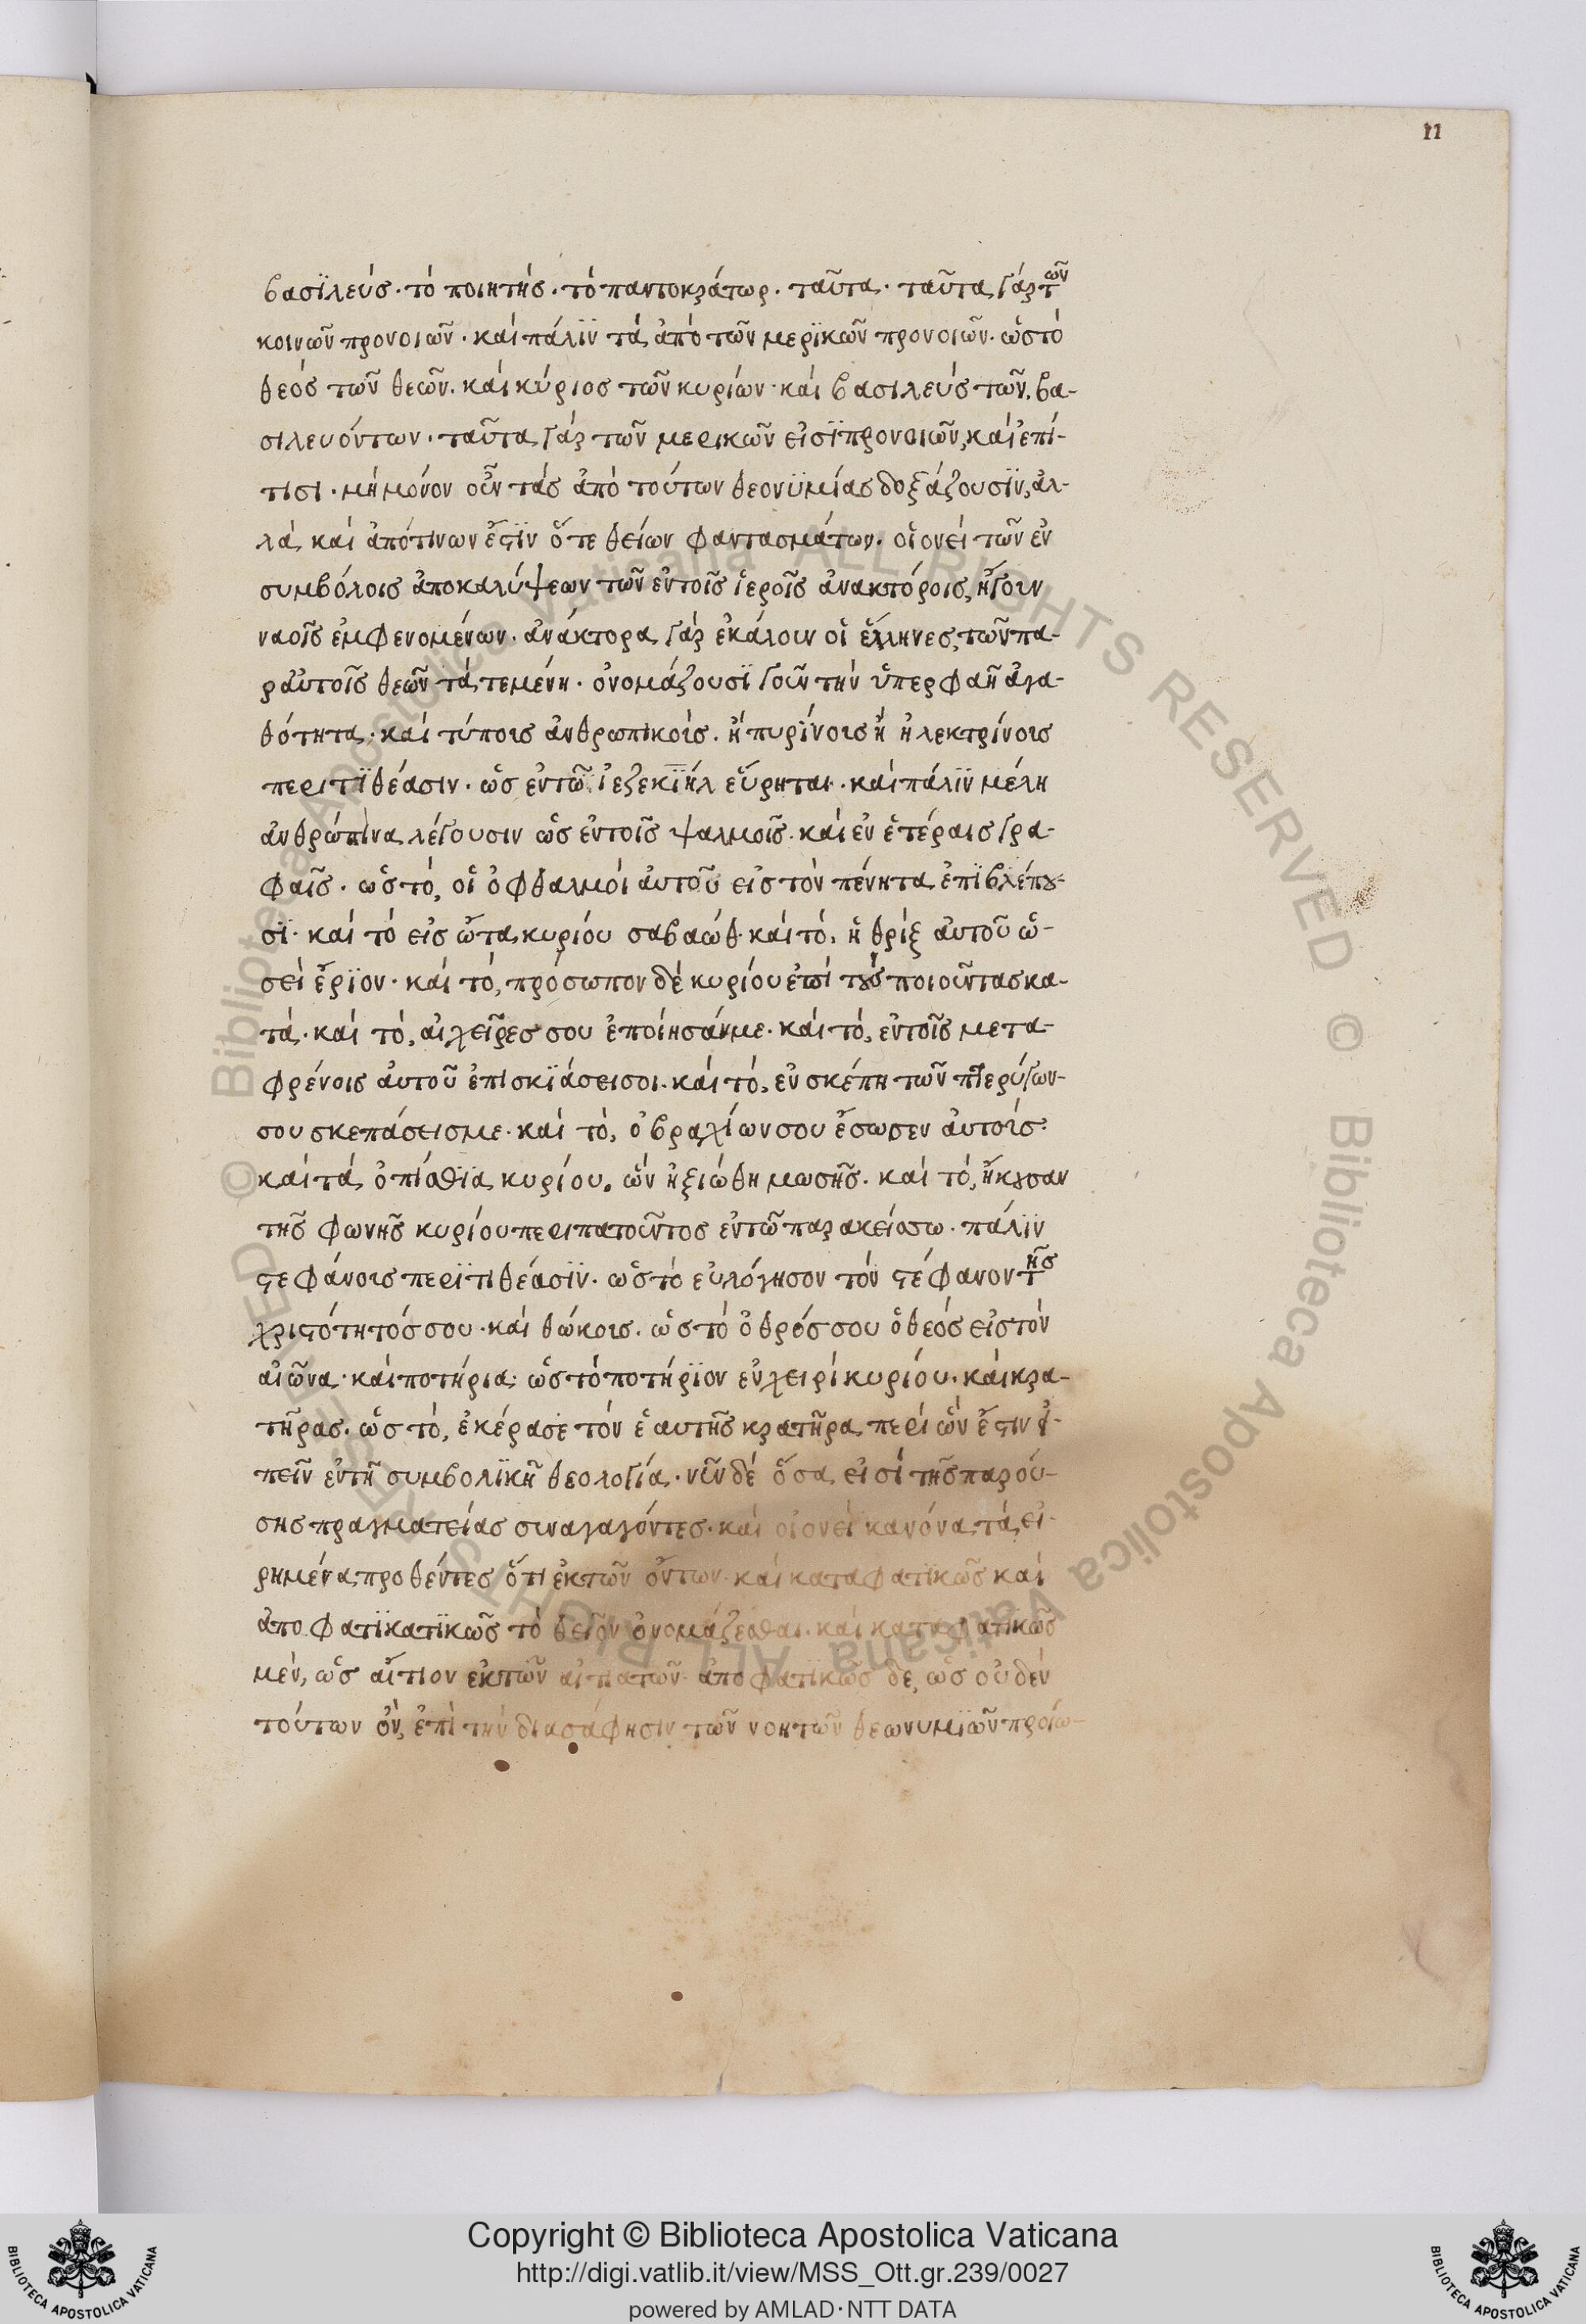 11
βασϊλεύς· τὸ ποιητής· τὸ παντοκράτωρ· ταῦτα· ταῦτα γὰρ τῶν
κοινῶν προνοιῶν· καὶ πάλϊν τὰ ἀπὸ τῶν μερϊκῶν προνοιῶν· ὡς τὸ
θεὸς τῶν θεῶν· καὶ κύριος τῶν κυρίων· καὶ βασιλεὺς τῶν βα-
σιλευόντων· ταῦτα γὰρ τῶν μερικῶν εἰσϊ προνοιῶν, καὶ ἐπί-
τισι· μὴ μόνον οὖν τὰς ἀπὸ τούτων θεονϋμίας δοξάζουσϊν, ἀλ-
λὰ καὶ ἀπό τινων ἔστϊν ὅτε θείων φαντασμάτων· οἱονεὶ τῶν ἐν
συμβόλοις ἀποκαλύψεων τῶν ἐν τοῖς ἱεροῖς ἀνακτόροις, ἤγουν
ναοῖς ἐμφενομένων· ἀνάκτορα γὰρ ἐκάλουν οἱ ἕλληνες, τῶν πα-
ρ' αὐτοῖς θεῶν τὰ τεμένη· ὀνομάζουσϊ γοῦν τὴν ὑπερφαῆ ἀγα-
θότητα· καὶ τύποις ἀνθρωπικοῖς· ἢ πυρϊνοις ἢ ἠλεκτρίνοις
περιτϊθέασιν· ὡς ἐν τῶ ἰεζεκϊὴλ εὕρηται· καὶ πάλϊν μέλη
ἀνθρώπινα λέγουσιν ὡς ἐν τοῖς ψαλμοῖς· καὶ ἐν ἑτέραις γρα-
φαῖς· ὡς τὸ, οἱ ὀφθαλμοὶ αὐτοῦ εἰς τὸν πένητα ἐπϊβλέπου-
σϊ· καὶ τὸ εἰς ὦτα κυρίου σαβαώθ· καὶ τὸ, ἡ θρὶξ αὐτοῦ ὡ-
σεὶ ἔρϊον· καὶ τὸ, πρόσωπον δὲ κυρίου ἐπὶ τοὺς ποιοῦντας κα-
τά· καὶ τὸ, αἱ χεῖρες σου ἐποίησάν με· καὶ τὸ, ἐν τοῖς μετα-
φρένοις αὐτοῦ ἐπισκϊάσει σοι· καὶ τὸ, ἐν σκέπη τῶν πτερύγων-
σου σκεπάσεις με· καὶ τὸ, ὁ βραχίων σου ἔσωσεν αὐτοίς·
καὶ τὰ ὀπίσθϊα κυρίου, ὧν ἠξιώθη μωσῆς· καὶ τὸ, ἤκουσαν
τῆς φωνῆς κυρίου περιπατοῦντος ἐν τῶ παρακείσω· πάλϊν
στεφάνοις περϊτιθέασϊν· ὡς τὸ εὐλόγησον τὸν στέφανον τῆς
χριστότητός σου· καὶ θώκοις· ὡς τὸ ὁ θρός σου ὁ θεὸς εἰς τὸν
αἰῶνα· καὶ ποτήρια· ὡς τὸ ποτήρϊον ἐν χειρὶ κυρίου· καὶ κρα-
τῆρας· ὡς τὸ, ἐκέρασε τὸν ἑαυτῆς κρατῆρα, περὶ ὧν ἔστιν εἰ-
πεῖν ἐν τῆ συμβολϊκῆ θεολογία· νῦν δὲ ὅσα εἰσὶ τῆς παρού-
σης πραγματείας συναγαγόντες· καὶ οἱονεὶ κανόνα τὰ εἰ-
ρημένα προθέντες ὅτι ἐκ τῶν ὄντων· καὶ καταφατϊκῶς καὶ
ἀποφατϊκατϊκῶς τὸ θεῖον ὀνομάζεσθαι· καὶ καταφατικῶς
μὲν, ὡς αἴτιον ἐκ τῶν αἰτιατῶν· ἀποφατϊκῶς δε, ὡς οὐδὲν
τούτων ὂν, ἐπὶ τὴν διασάφησιν τῶν νοητῶν θεωνυμϊῶν προΐω-
Copyright © Biblioteca Apostolica Vaticana
http://digi.vatlib.it/view/MSS_Ott.gr.239/0027
powered by AMLAD·NTT DATA